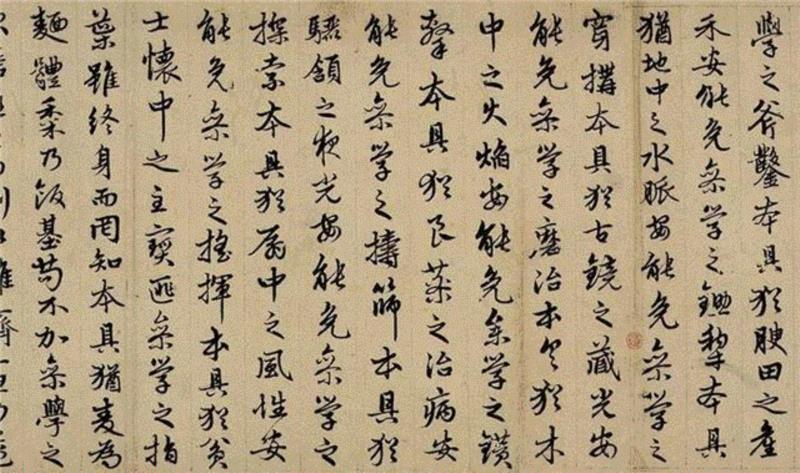 學之斧鑿本具猶腴田之產
禾安能免叅學之鋤犂本具
猶地中之水脈安能免叅學之
穿搆本具猶古鏡之藏光安
能免叅學之磨治本具猶木
中之火焰安能免叅學之鑽
本具猶良藥之治病安
能免叅學之擣篩本具猶
驪頷之夜光安能免叅學之
探索本具猶扇中之風性安
能免叅學之搖揮本具猶貧
士懷中之主寶匪叅學之指
雖終身而罔知本具猶麦為
麵體黍乃飯基苟不加叅學之